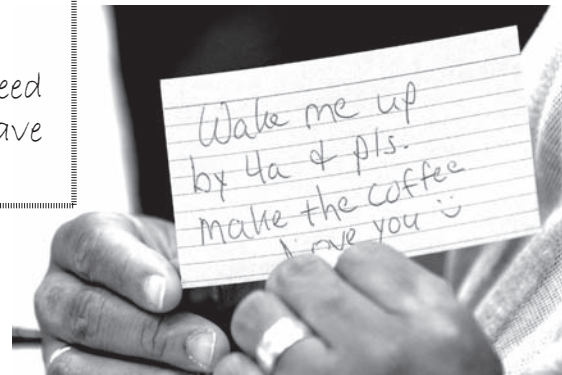 eed
ave
Wake me up
by 4a & pls.
make the coffee
Love you